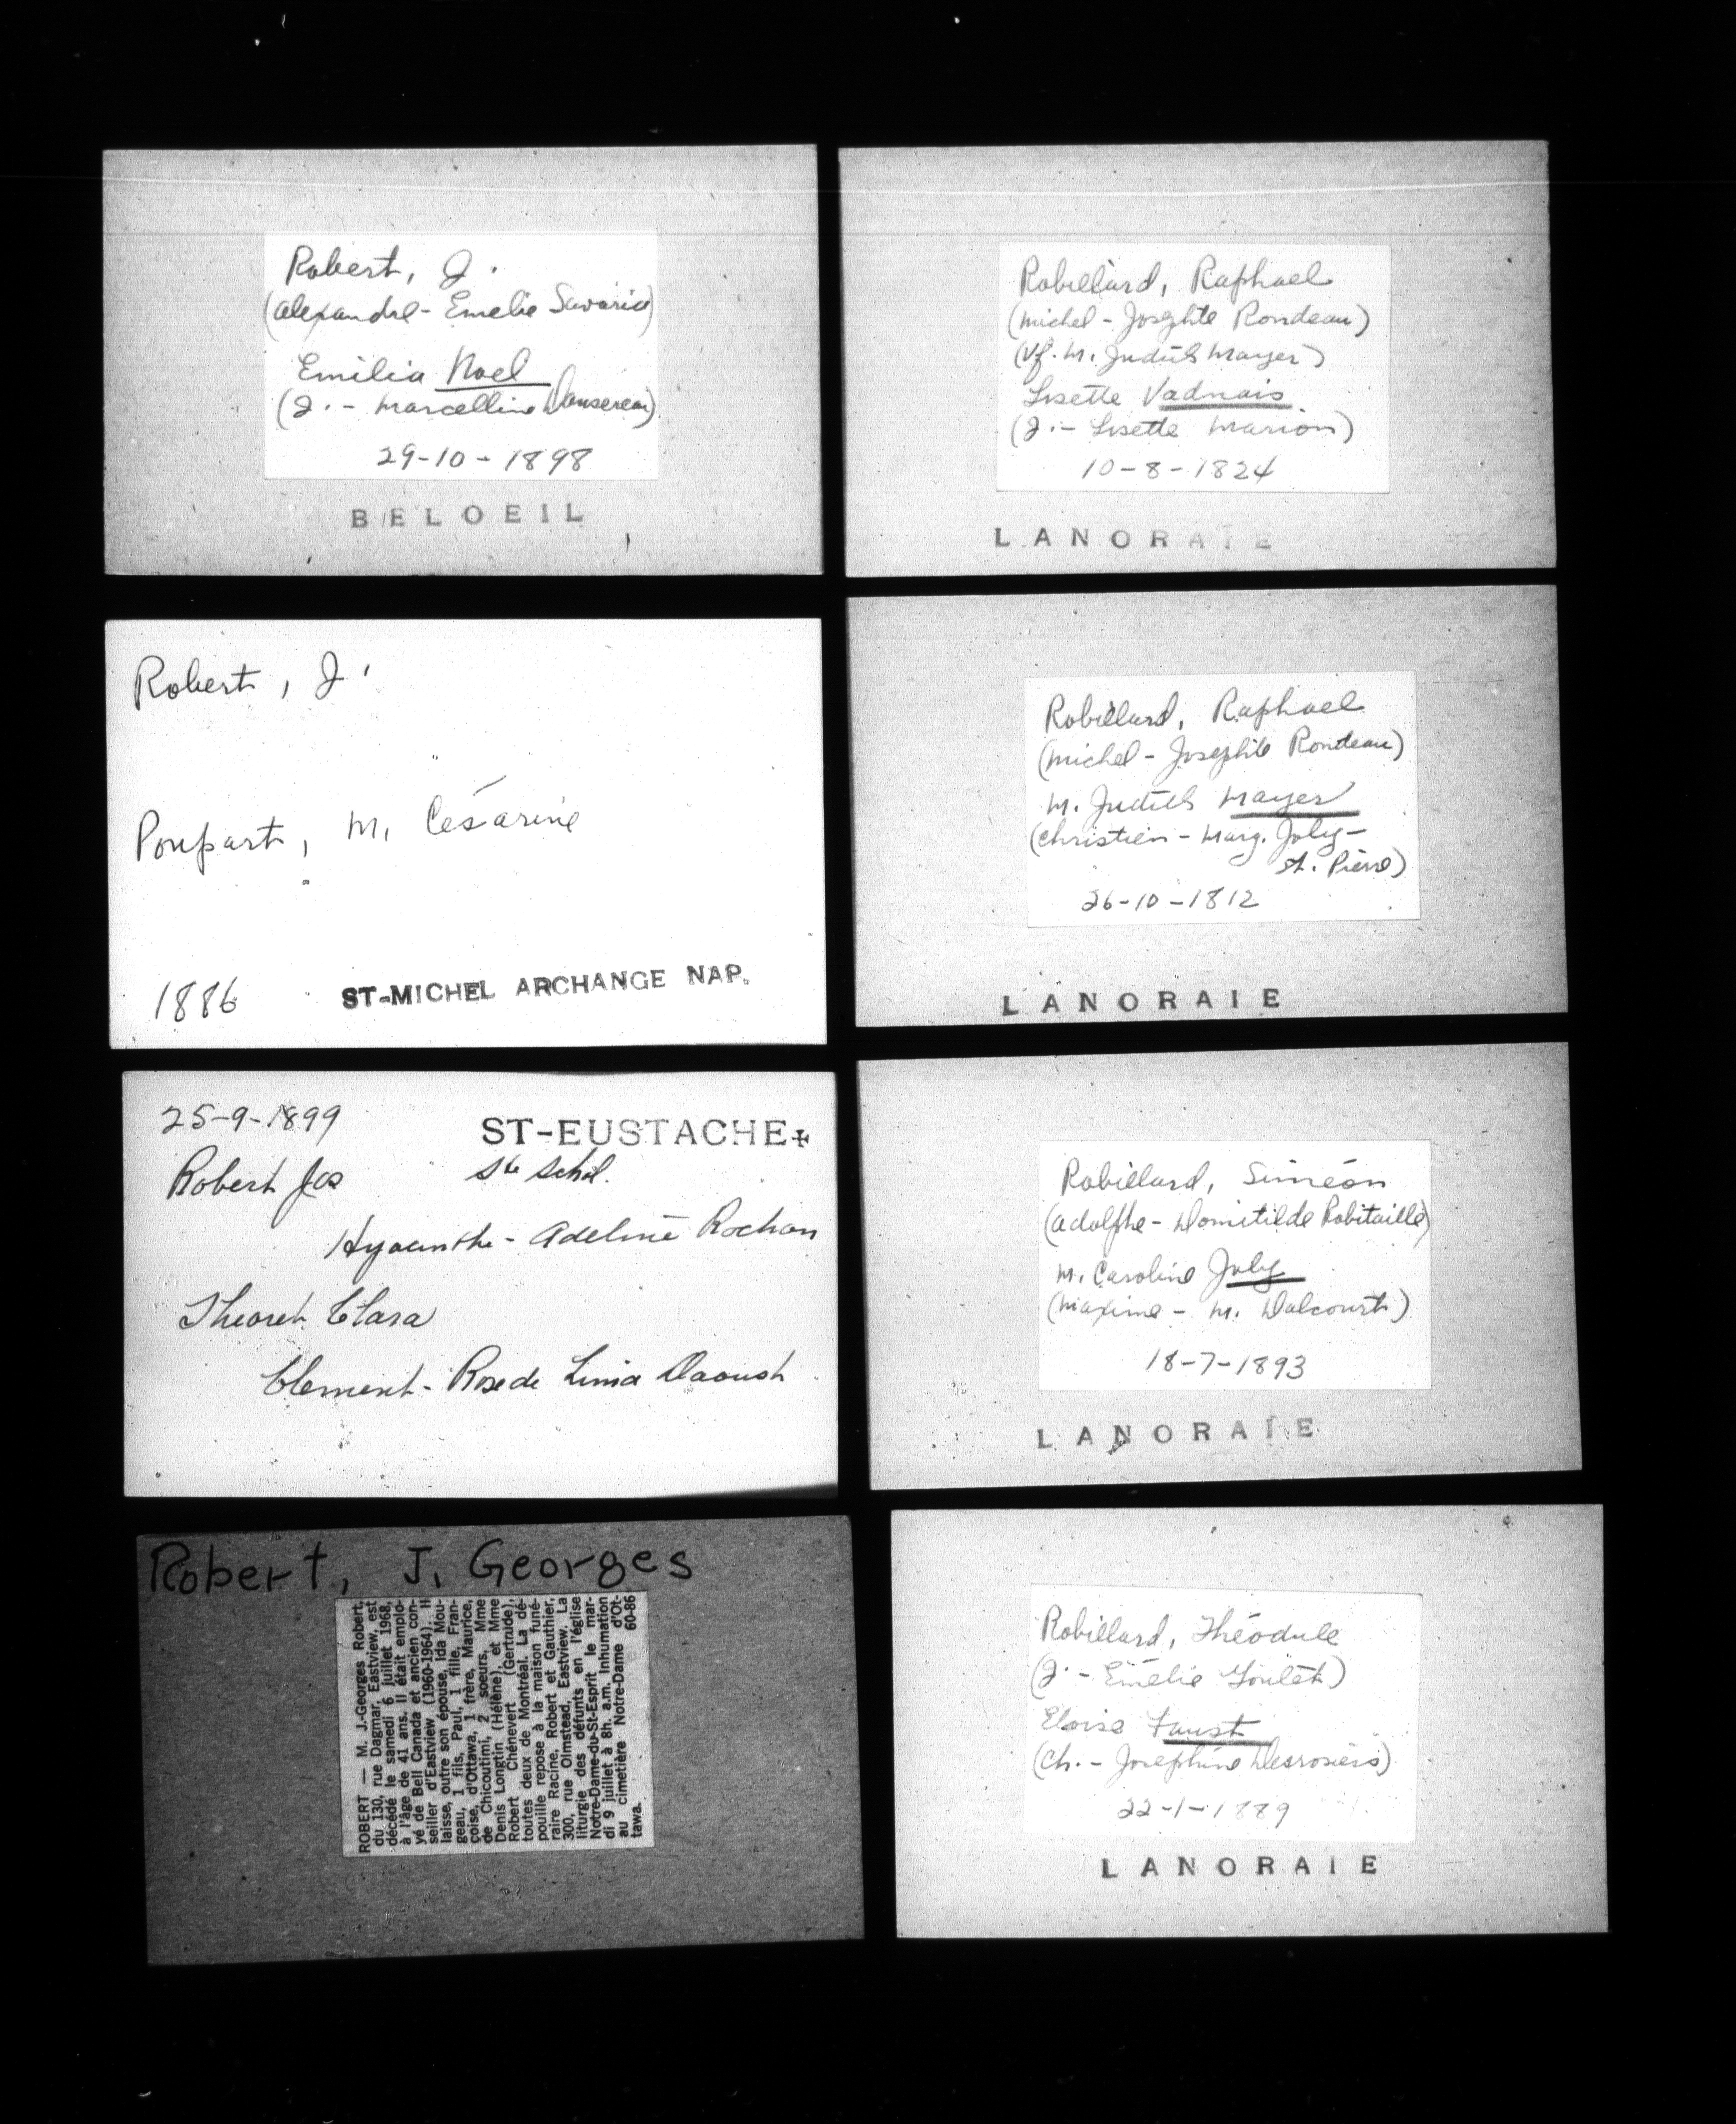 Robert, J.
(Alexandre - Emelie Savaria)
Emilia Noel
(J. - Marcelline Dansereau)
29-10-1898
BELOEIL
Robert, J.
Poupart, M. Césarine
1886 ST-MICHEL ARCHANGE NAP.
25-9-1899 ST-EUSTACHE+
Robert Jos Ste Schol.
Hyacinthe - Adeline Rochon
Theoret Clara
Clement - Rose de Lima Daoust
Robert, J. Georges
ROBERT — M. J.-Georges Robert,
du 130, rue Dagmar, Eastview, est
décédé le samedi 6 juillet 1968,
à l'âge de 41 ans. Il était emplo-
yé de Bell Canada et ancien con-
seiller d'Eastview (1960-1964). Il
laisse, outre son épouse, Ida Mou-
geau, 1 fils, Paul, 1 fille, Fran-
çoise, d'Ottawa, 1 frère, Maurice,
de Chicoutimi, 2 soeurs, Mme
Denis Longtin (Hélène), et Mme
Robert Chénevert (Gertrude),
toutes deux de Montréal. La dé-
pouille repose à la maison funé-
raire Racine, Robert et Gauthier,
300, rue Olmstead, Eastview. La
liturgie des défunts en l'église
Notre-Dame-du-St-Esprit le mar-
di 9 juillet à 8h. a.m. Inhumation
au cimetière Notre-Dame d'Ot-
tawa. 60-86
Robillard, Raphael
(Michel - Josephte Rondeau)
(Vf. M. Judith Mayer)
Lisette Vadnais
(J. - Lisette Marion)
10-8-1824
LANORAIE
Robillard, Raphael
(Michel - Josephte Rondeau)
M. Judith Mayer
(Christien - Marg. Joly -
St. Pierre)
26-10-1812
LANORAIE
Robillard, Siméon
(Adolphe - Domitilde Robitaille)
M. Caroline Joly
(Maxime - M. Dalcourt)
18-7-1893
LANORAIE
Robillard, Théodule
(J. - Emélie Goulet)
Eloise Faust
(Ch. - Josephine Desrosiers)
22-1-1889
LANORAIE